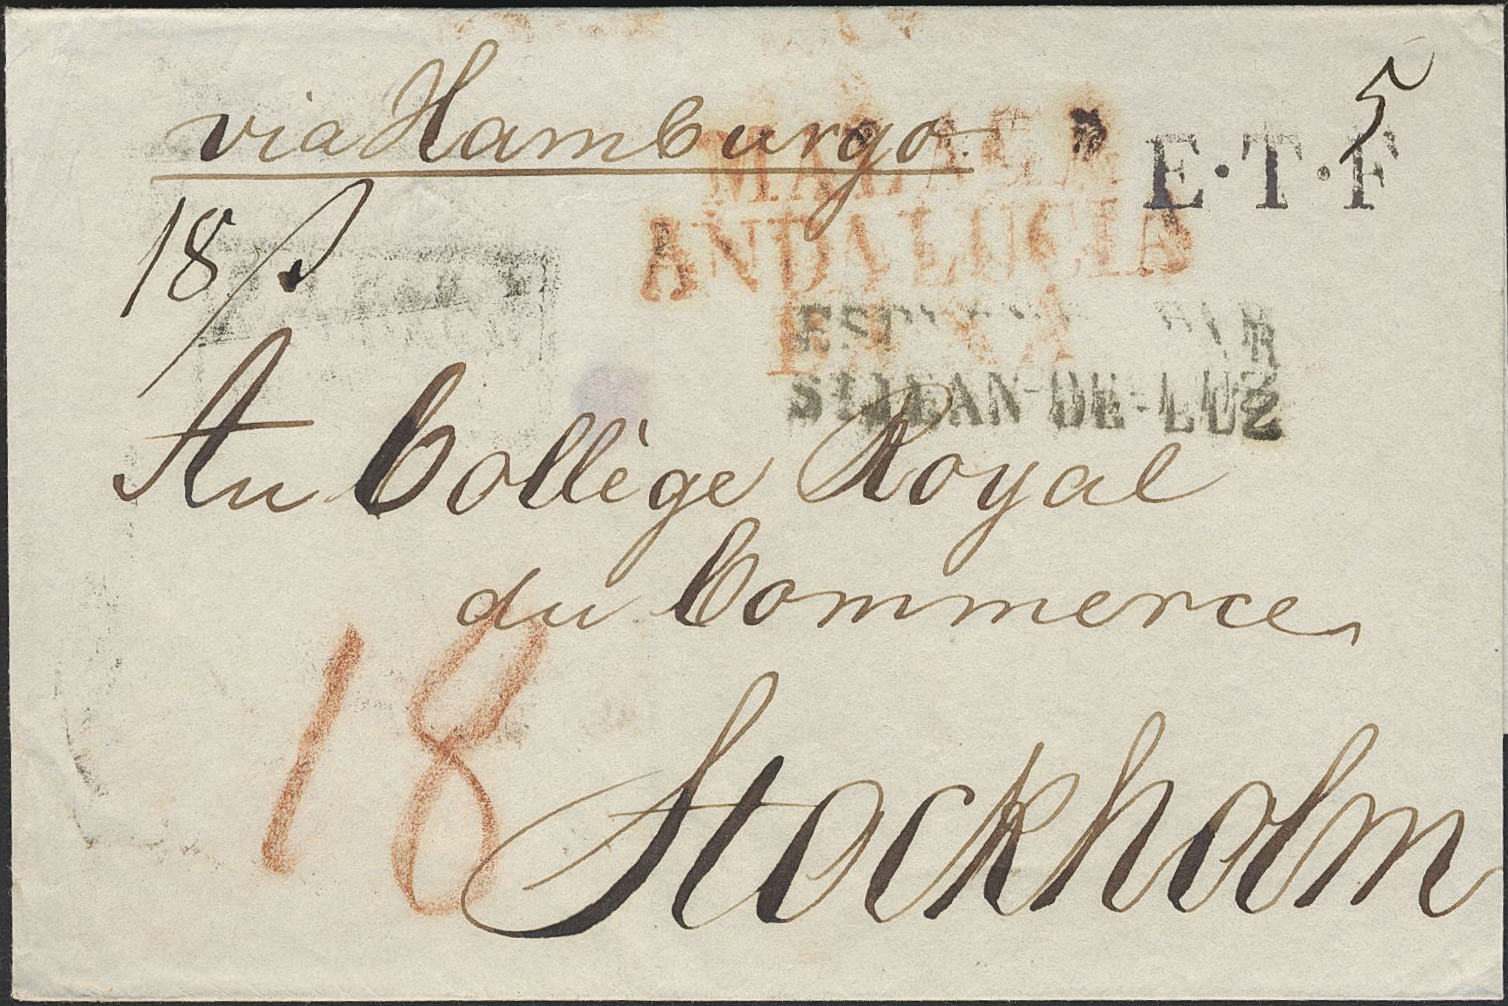 via Hamburgo.
5
E·T·F
MALAGA
ANDALUCIA
18
ST JEAN-DE-LUZ
PAR
Au Collège Royal
du Commerce,
18
Stockholm